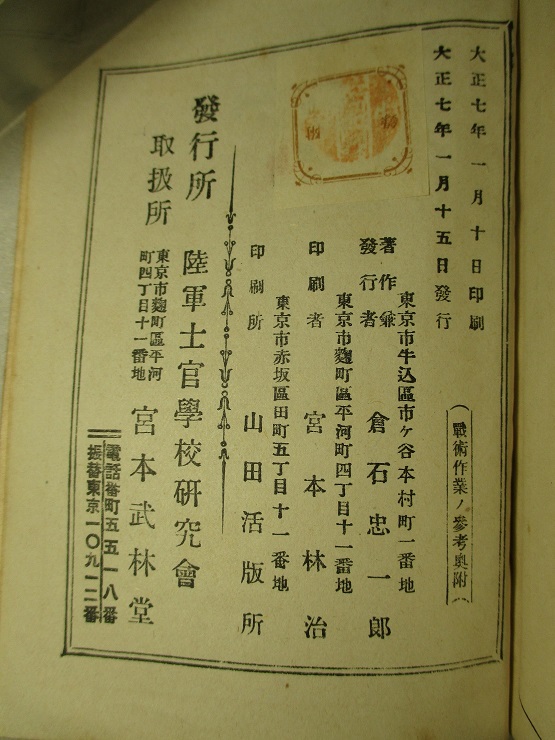 大正七年一月十日印刷
大正七年一月十五日發行
(戰術作業ノ參考奥附)
東京市牛込區市ケ谷本村町一番地
著作兼
發行者
倉石忠一郎
東京市麴町區平河町四丁目十一番地
印刷者
宮本林治
東京市赤坂區田町五丁目十一番地
印刷所
山田活版所
發行所
陸軍士官學校研究會
取扱所
東京市麴町區平河
町四丁目十一番地
宮本武林堂
電話番町五五一八番
振替東京一〇九一二番